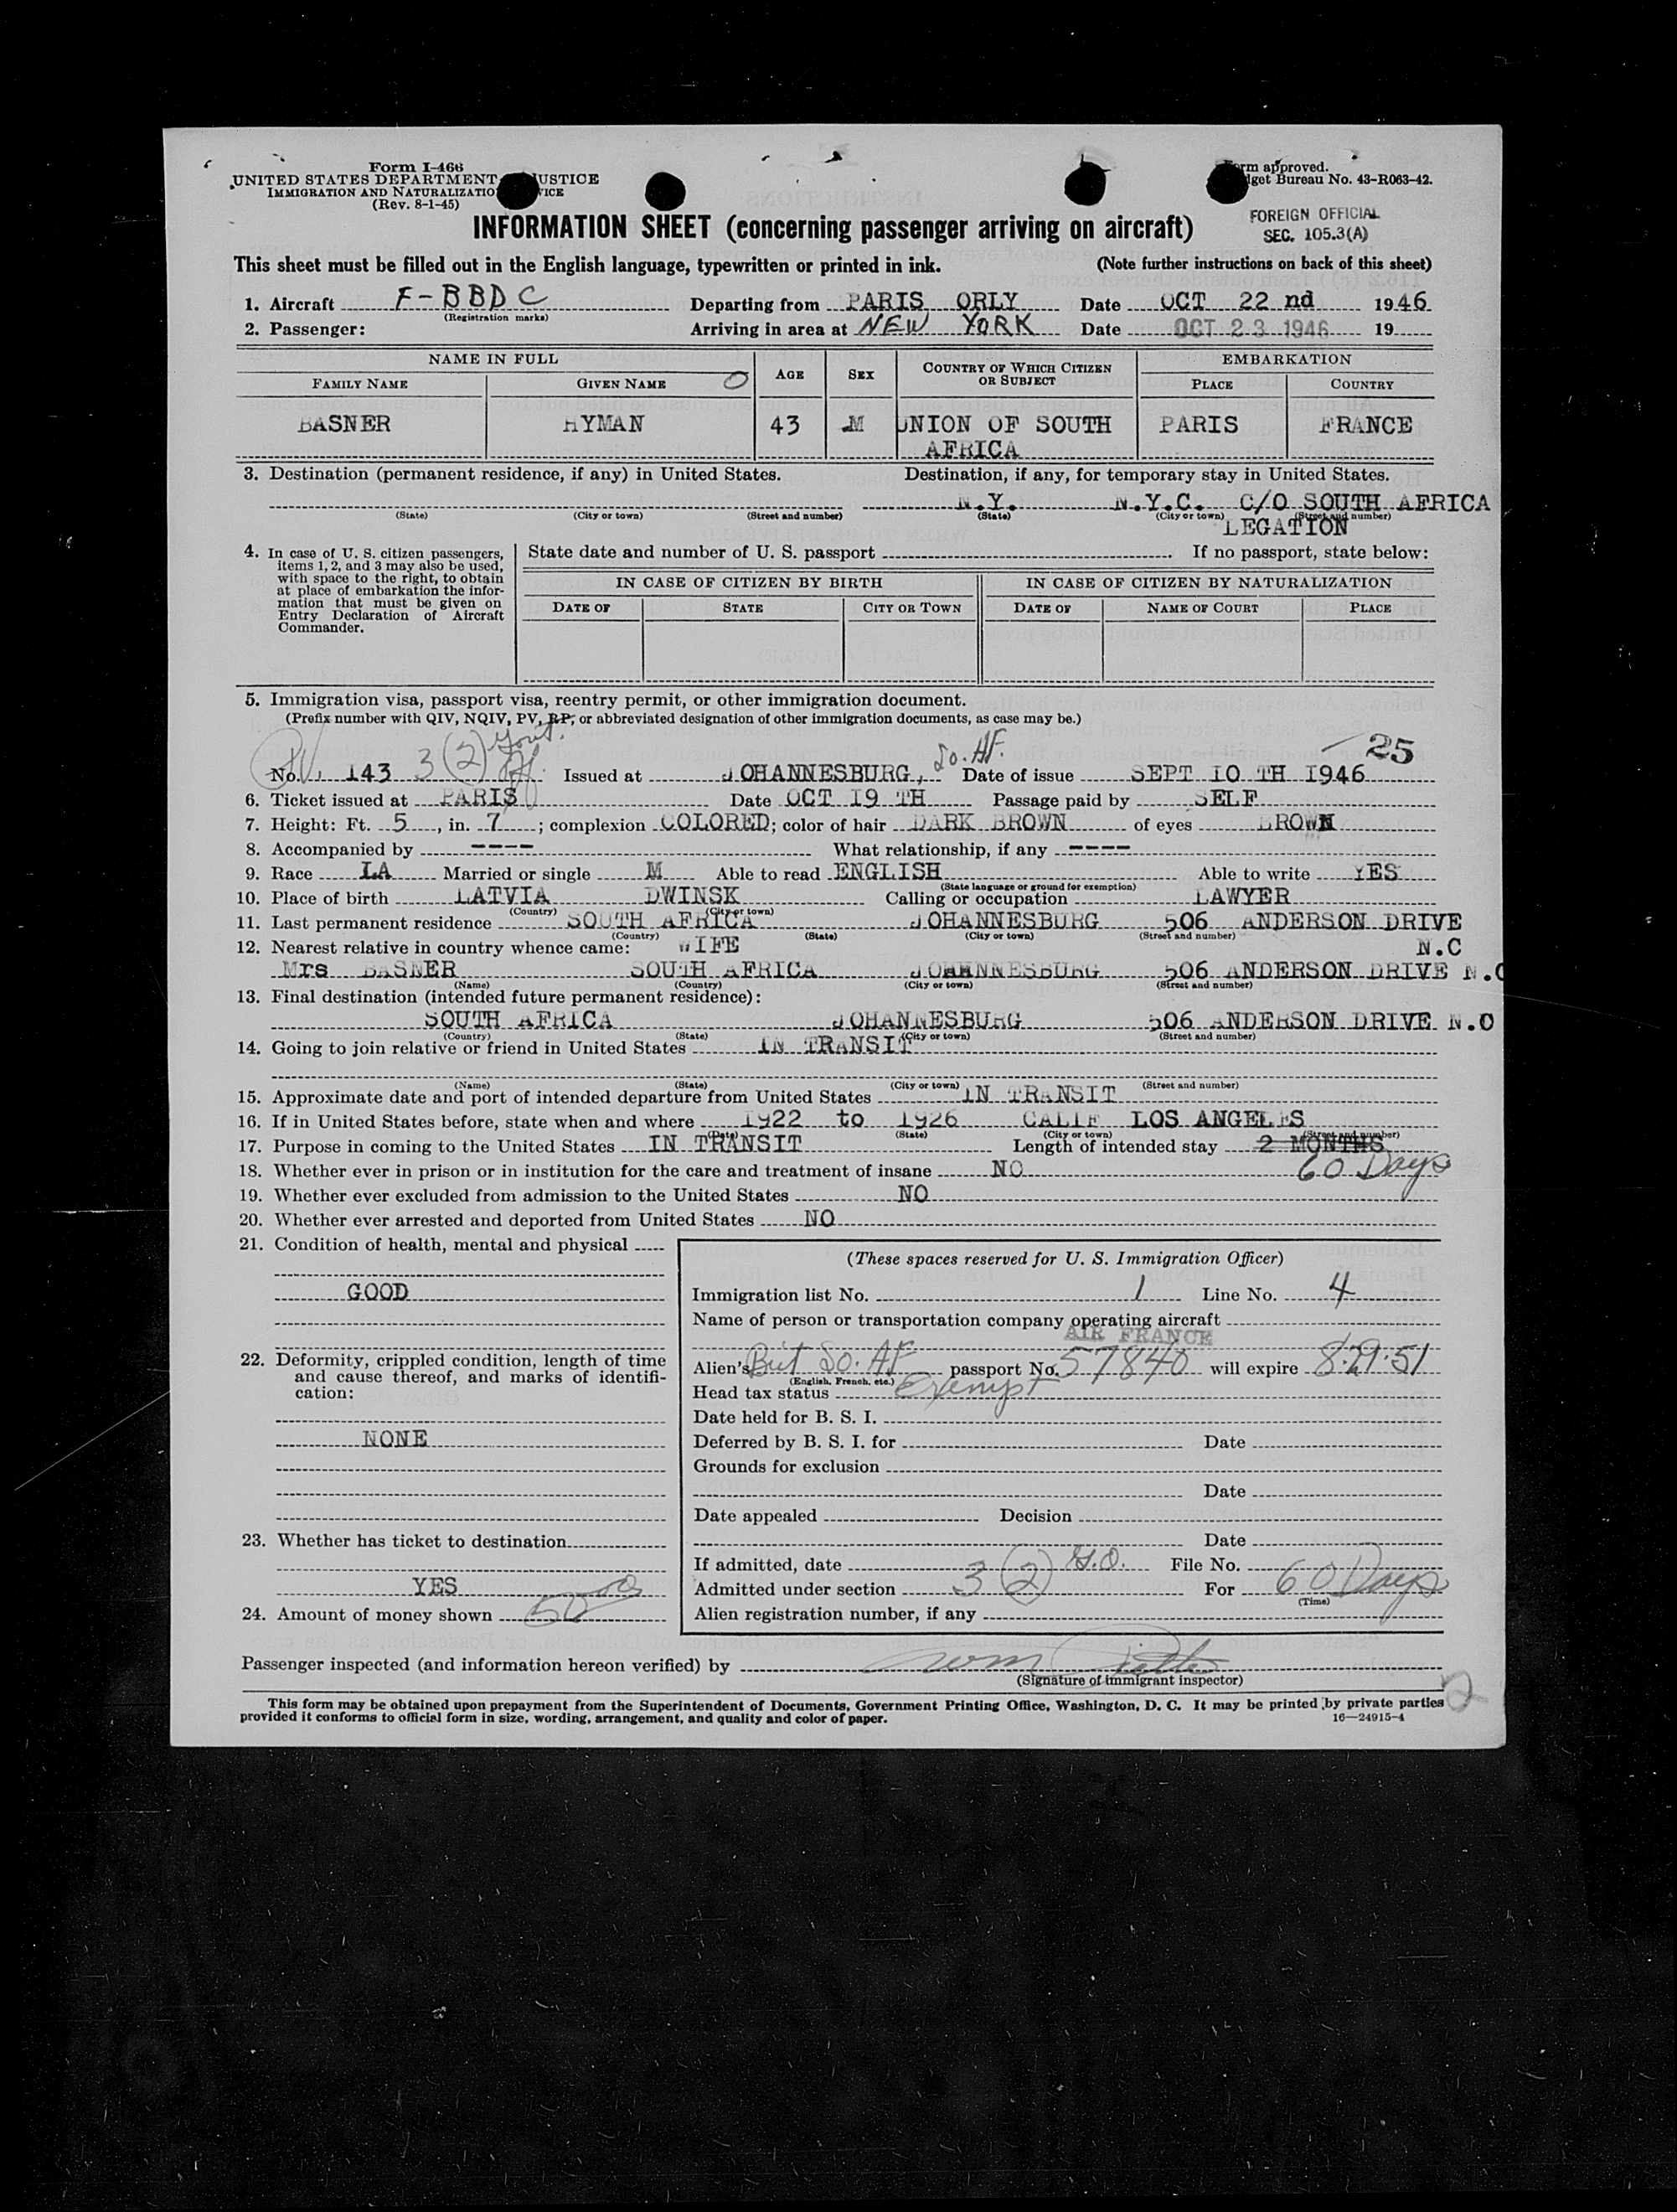 Form I-466
UNITED STATES DEPARTMENT JUSTICE
IMMIGRATION AND NATURALIZATIO VICE
(Rev. 8-1-45)
rm approved.
dget Bureau No. 43-R063-42.
INFORMATION SHEET (concerning passenger arriving on aircraft)
FOREIGN OFFICIAL
SEC. 105.3(A)
This sheet must be filled out in the English language, typewritten or printed in ink. (Note further instructions on back of this sheet)
1. Aircraft F-BBDC Departing from PARIS ORLY Date OCT 22 nd 1946
(Registration marks)
2. Passenger: Arriving in area at NEW YORK Date OCT 23 1946 19
NAME IN FULL AGE SEX COUNTRY OF WHICH CITIZEN OR SUBJECT EMBARKATION
FAMILY NAME GIVEN NAME PLACE COUNTRY
BASNER HYMAN 43 M UNION OF SOUTH PARIS FRANCE
AFRICA
3. Destination (permanent residence, if any) in United States. Destination, if any, for temporary stay in United States.
N.Y. N.Y.C. C/O SOUTH AFRICA
(State) (City or town) (Street and number) (State) (City or town) (Street and number)
LEGATION
4. In case of U. S. citizen passengers, items 1, 2, and 3 may also be used, with space to the right, to obtain at place of embarkation the information that must be given on Entry Declaration of Aircraft Commander.
State date and number of U. S. passport If no passport, state below:
IN CASE OF CITIZEN BY BIRTH IN CASE OF CITIZEN BY NATURALIZATION
DATE OF STATE CITY OR TOWN DATE OF NAME OF COURT PLACE
5. Immigration visa, passport visa, reentry permit, or other immigration document.
(Prefix number with QIV, NQIV, PV, RP, or abbreviated designation of other immigration documents, as case may be.)
PV Govt. So. Af. 25
No. 143 3(2) Of. Issued at JOHANNESBURG, Date of issue SEPT 10 TH 1946
6. Ticket issued at PARIS Date OCT 19 TH Passage paid by SELF
7. Height: Ft. 5, in. 7; complexion COLORED; color of hair DARK BROWN of eyes BROWN
8. Accompanied by ---- What relationship, if any ----
9. Race LA Married or single M Able to read ENGLISH Able to write YES
(State language or ground for exemption)
10. Place of birth LATVIA DWINSK Calling or occupation LAWYER
(Country) (City or town)
11. Last permanent residence SOUTH AFRICA JOHANNESBURG 506 ANDERSON DRIVE
(Country) (State) (City or town) (Street and number)
N.C
12. Nearest relative in country whence came: WIFE
Mrs BASNER SOUTH AFRICA JOHANNESBURG 506 ANDERSON DRIVE N.C
(Name) (Country) (City or town) (Street and number)
13. Final destination (intended future permanent residence):
SOUTH AFRICA JOHANNESBURG 506 ANDERSON DRIVE N.O
(Country) (State) (City or town) (Street and number)
14. Going to join relative or friend in United States IN TRANSIT
(Name) (State) (City or town) (Street and number)
15. Approximate date and port of intended departure from United States IN TRANSIT
16. If in United States before, state when and where 1922 to 1926 CALIF LOS ANGELES
(Date) (State) (City or town) (Street and number)
17. Purpose in coming to the United States IN TRANSIT Length of intended stay 2 MONTHS
60 Days
18. Whether ever in prison or in institution for the care and treatment of insane NO
19. Whether ever excluded from admission to the United States NO
20. Whether ever arrested and deported from United States NO
21. Condition of health, mental and physical
GOOD
22. Deformity, crippled condition, length of time and cause thereof, and marks of identification:
NONE
23. Whether has ticket to destination
YES
24. Amount of money shown 50 00
(These spaces reserved for U. S. Immigration Officer)
Immigration list No. 1 Line No. 4
Name of person or transportation company operating aircraft
AIR FRANCE
Alien's Brit So. Af passport No. 57840 will expire 8-29-51
(English, French, etc.)
Head tax status Exempt
Date held for B. S. I.
Deferred by B. S. I. for Date
Grounds for exclusion
Date
Date appealed Decision
Date
If admitted, date G.O. File No.
Admitted under section 3(2) For 60 Days
(Time)
Alien registration number, if any
Passenger inspected (and information hereon verified) by Wm
(Signature of immigrant inspector)
2
This form may be obtained upon prepayment from the Superintendent of Documents, Government Printing Office, Washington, D. C. It may be printed by private parties
provided it conforms to official form in size, wording, arrangement, and quality and color of paper. 16—24915-4